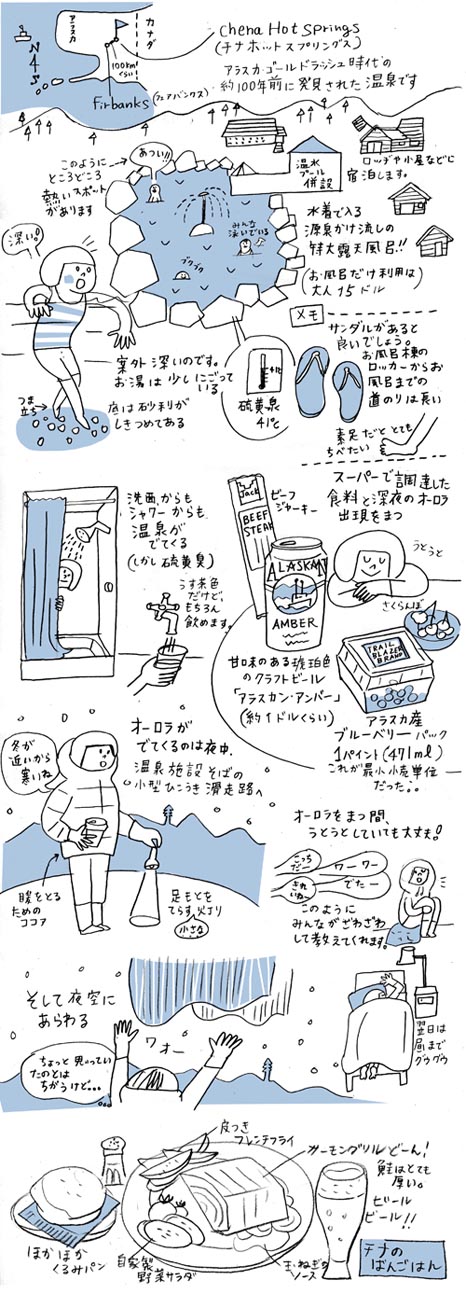 カナダ
アラスカ
100kmくらい
Firbanks (フェアバンクス)
Chena Hot Springs
(チナホットスプリングス)
アラスカ・ゴールドラッシュ時代の
約100年前に発見された温泉です
このように
ところどころ
熱いスポット
があります
あつい!!
温水
プール
併設
ロッヂや小屋などに
宿泊します。
深い!
みんな
泳いでいる
ブクブク
水着で入る
源泉かけ流しの
特大露天風呂!!
(お風呂だけ利用は
大人15ドル)
案外深いのです。
お湯は少しにごって
いる
つま
立ち
底は砂利が
しきつめてある
41℃
硫黄泉
41℃
メモ
サンダルがあると
良いでしょう。
お風呂棟の
ロッカーからお
風呂までの
道のりは長い
素足だととても
ちべたい
洗面からも
シャワーからも
温泉が
でてくる
(しかし硫黄臭)
うす茶色
だけど、
もちろん
飲めます。
Jack
BEEF
STEAK
ビーフ
ジャーキー
スーパーで調達した
食料と深夜のオーロラ
出現をまつ
うとうと
ALASKAN
AMBER
さくらんぼ
TRAIL
BLAZER
BRAND
甘味のある琥珀色
のクラフトビール
「アラスカン・アンバー」
(約1ドルくらい)
アラスカ産
ブルーベリーパック
1パイント(471ml)
これが最小小売単位
だった。。
冬が
近いから
寒いね
オーロラが
でてくるのは夜中。
温泉施設そばの
小型ひこうき滑走路へ
暖をとる
ための
ココア
足もとを
てらす灯り
小さな
オーロラをまつ間、
うとうとしていても大丈夫!
こっち
だー
ワーワー
きれ
いねー
でたー
このように
みんながざわざわ
して教えてくれます。
そして夜空に
あらわる
ワオー
ちょっと思ってい
たのとは
ちがうけど…
翌日は
昼まで
グウグウ
皮つき
フレンチフライ
サーモングリルどーん!
鮭はとても
厚い。
ビール
ビール!!
ほかほか
くるみパン
自家製
野菜サラダ
玉ねぎの
ソース
チナの
ばんごはん